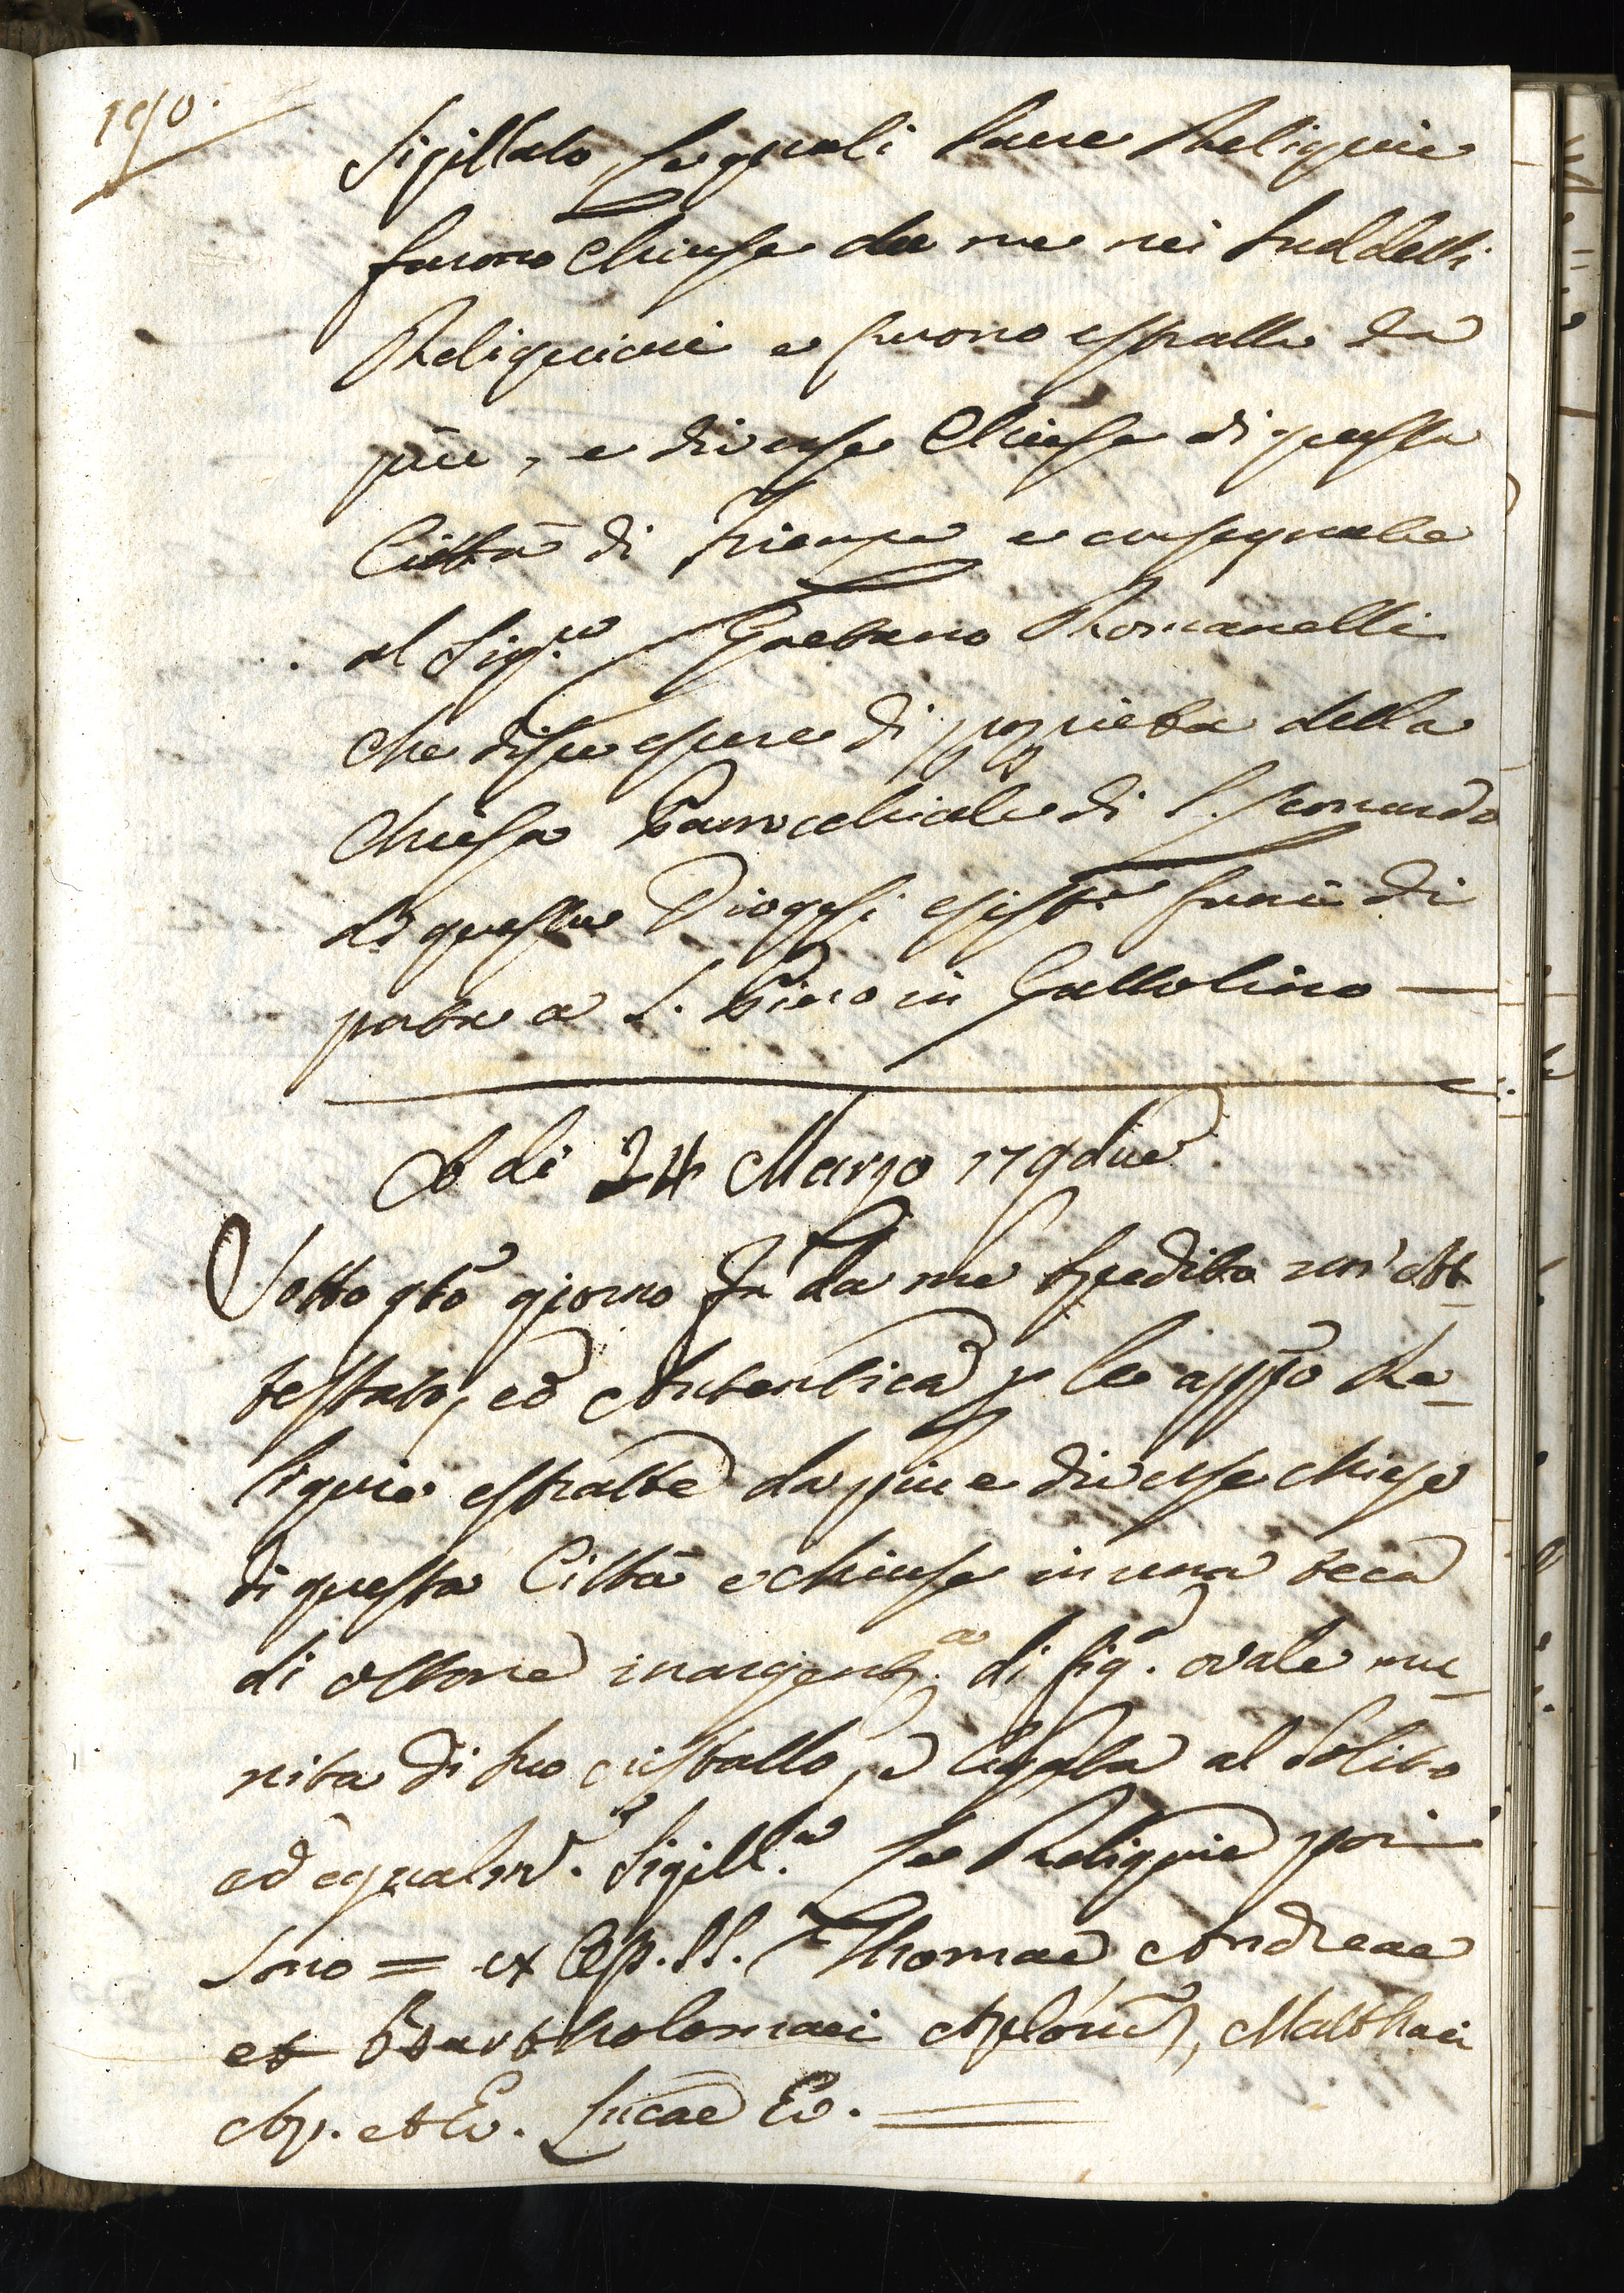 190.
Sigillato, le quali Sacre Reliquie
furono chiuse da me nei suddetti
Reliquiari e furono estratte da
più, e diverse Chiese di questa
Città di Firenze e consegnate
al Sig.re Gaetano Romanelli
che disse essere di proprietà della
Chiesa Parrocchiale di S. Leonardo
di questa Diogesi esist.e fuori di
porta a S. Piero in Gattolino —
A di 24 Marzo 179due
Sotto qto giorno fu da me spedita un' At-
testato, ed Autentica p le appso Re-
liquie estratte da più e diverse chiese
di questa Città e chiuse in una teca
di ottone inargent.a di fig.a ovale mu-
nita di suo cristallo, e legata al solito
ed egualm.e sigill.a Le Reliquie poi
sono = ex Oss. SS. Thomae, Andreae
et Bartholomaei Aplorum, Matthaei
Ap. et Ev. Lucae Ev.